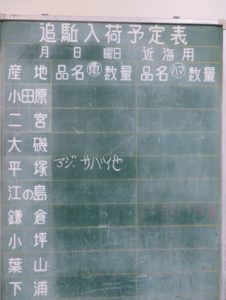 追駈入荷予定表
月 日 曜日 近海用
産地 品名 数量 品名 数量
小田原
二宮
大磯
平塚 アジ、サバ他
江の島
鎌倉
小坪
葉山
下浦